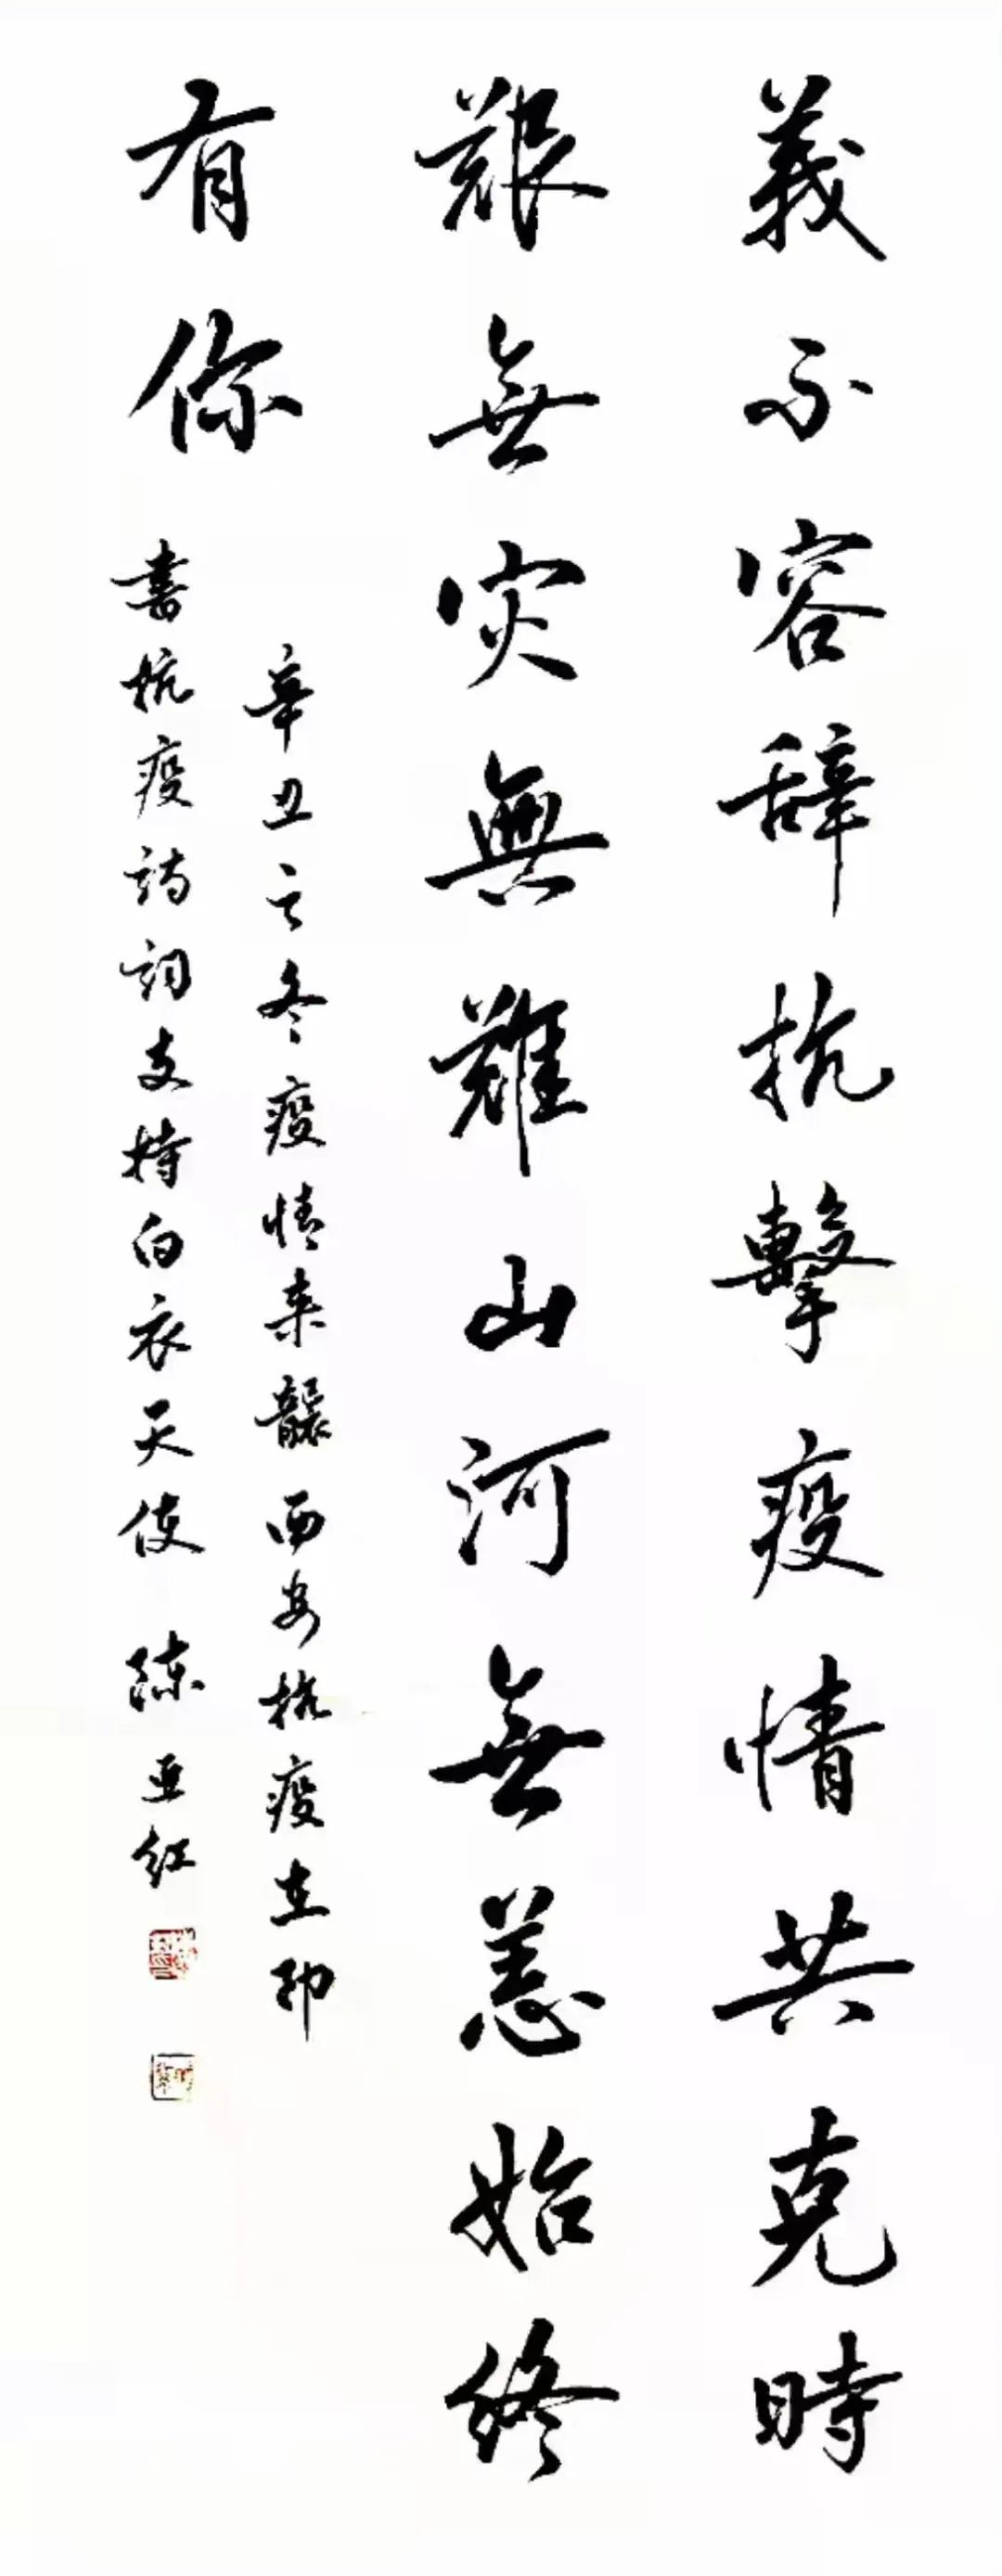 義不容辞抗擊疫情共克時
艱無灾無難山河無恙始終
有你
辛丑之冬疫情来襲西安抗疫立即
書抗疫詩词支持白衣天使 陈亚红